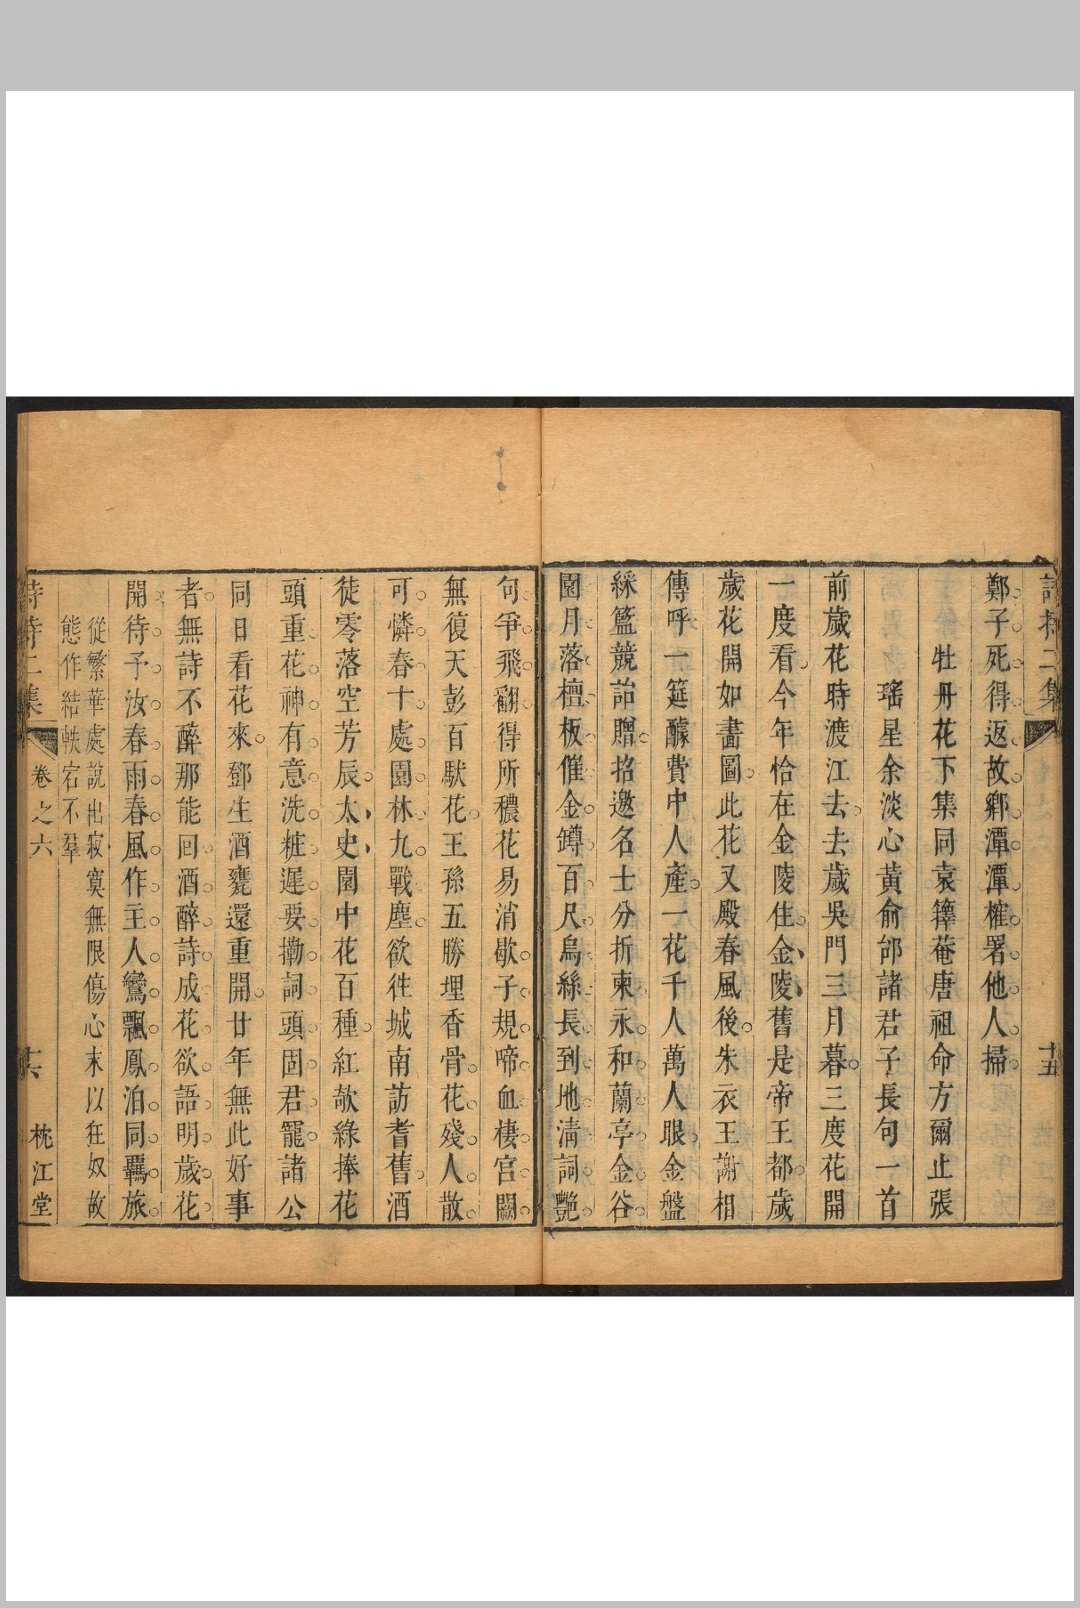 鄭子死得返故鄉潭潭榷署他人掃
牡丹花下集同袁籜菴唐祖命方爾止張
瑤星余淡心黃俞邰諸君子長句一首
前歲花時渡江去去歲吳門三月暮三度花開
一度看今年恰在金陵住金陵舊是帝王都歲
歲花開如畵圖此花又殿春風後朱衣王謝相
傳呼一筵醵費中人產一花千人萬人眼金盤
綵籃競詒贈招邀名士分折柬永和蘭亭金谷
園月落檀板催金罇百尺烏絲長到地淸詞艷
句爭飛翻得所穠花易消歇子規啼血棲宮闕
無復天彭百馱花王孫五勝埋香骨花殘人散
可憐春十處園林九戰塵欲徃城南訪耆舊酒
徒零落空芳辰太史園中花百種紅欹綠捧花
頭重花神有意洗粧遲要擻詞頭固君寵諸公
同日看花來鄧生酒甕還重開廿年無此好事
者無詩不醉那能囘酒醉詩成花欲語明歲花
開待予汝春雨春風作主人鸞飄鳳泊同羈旅
從繁華處說出寂寞無限傷心末以狂奴故
態作結軼宕不羣
卷之六
枕江堂